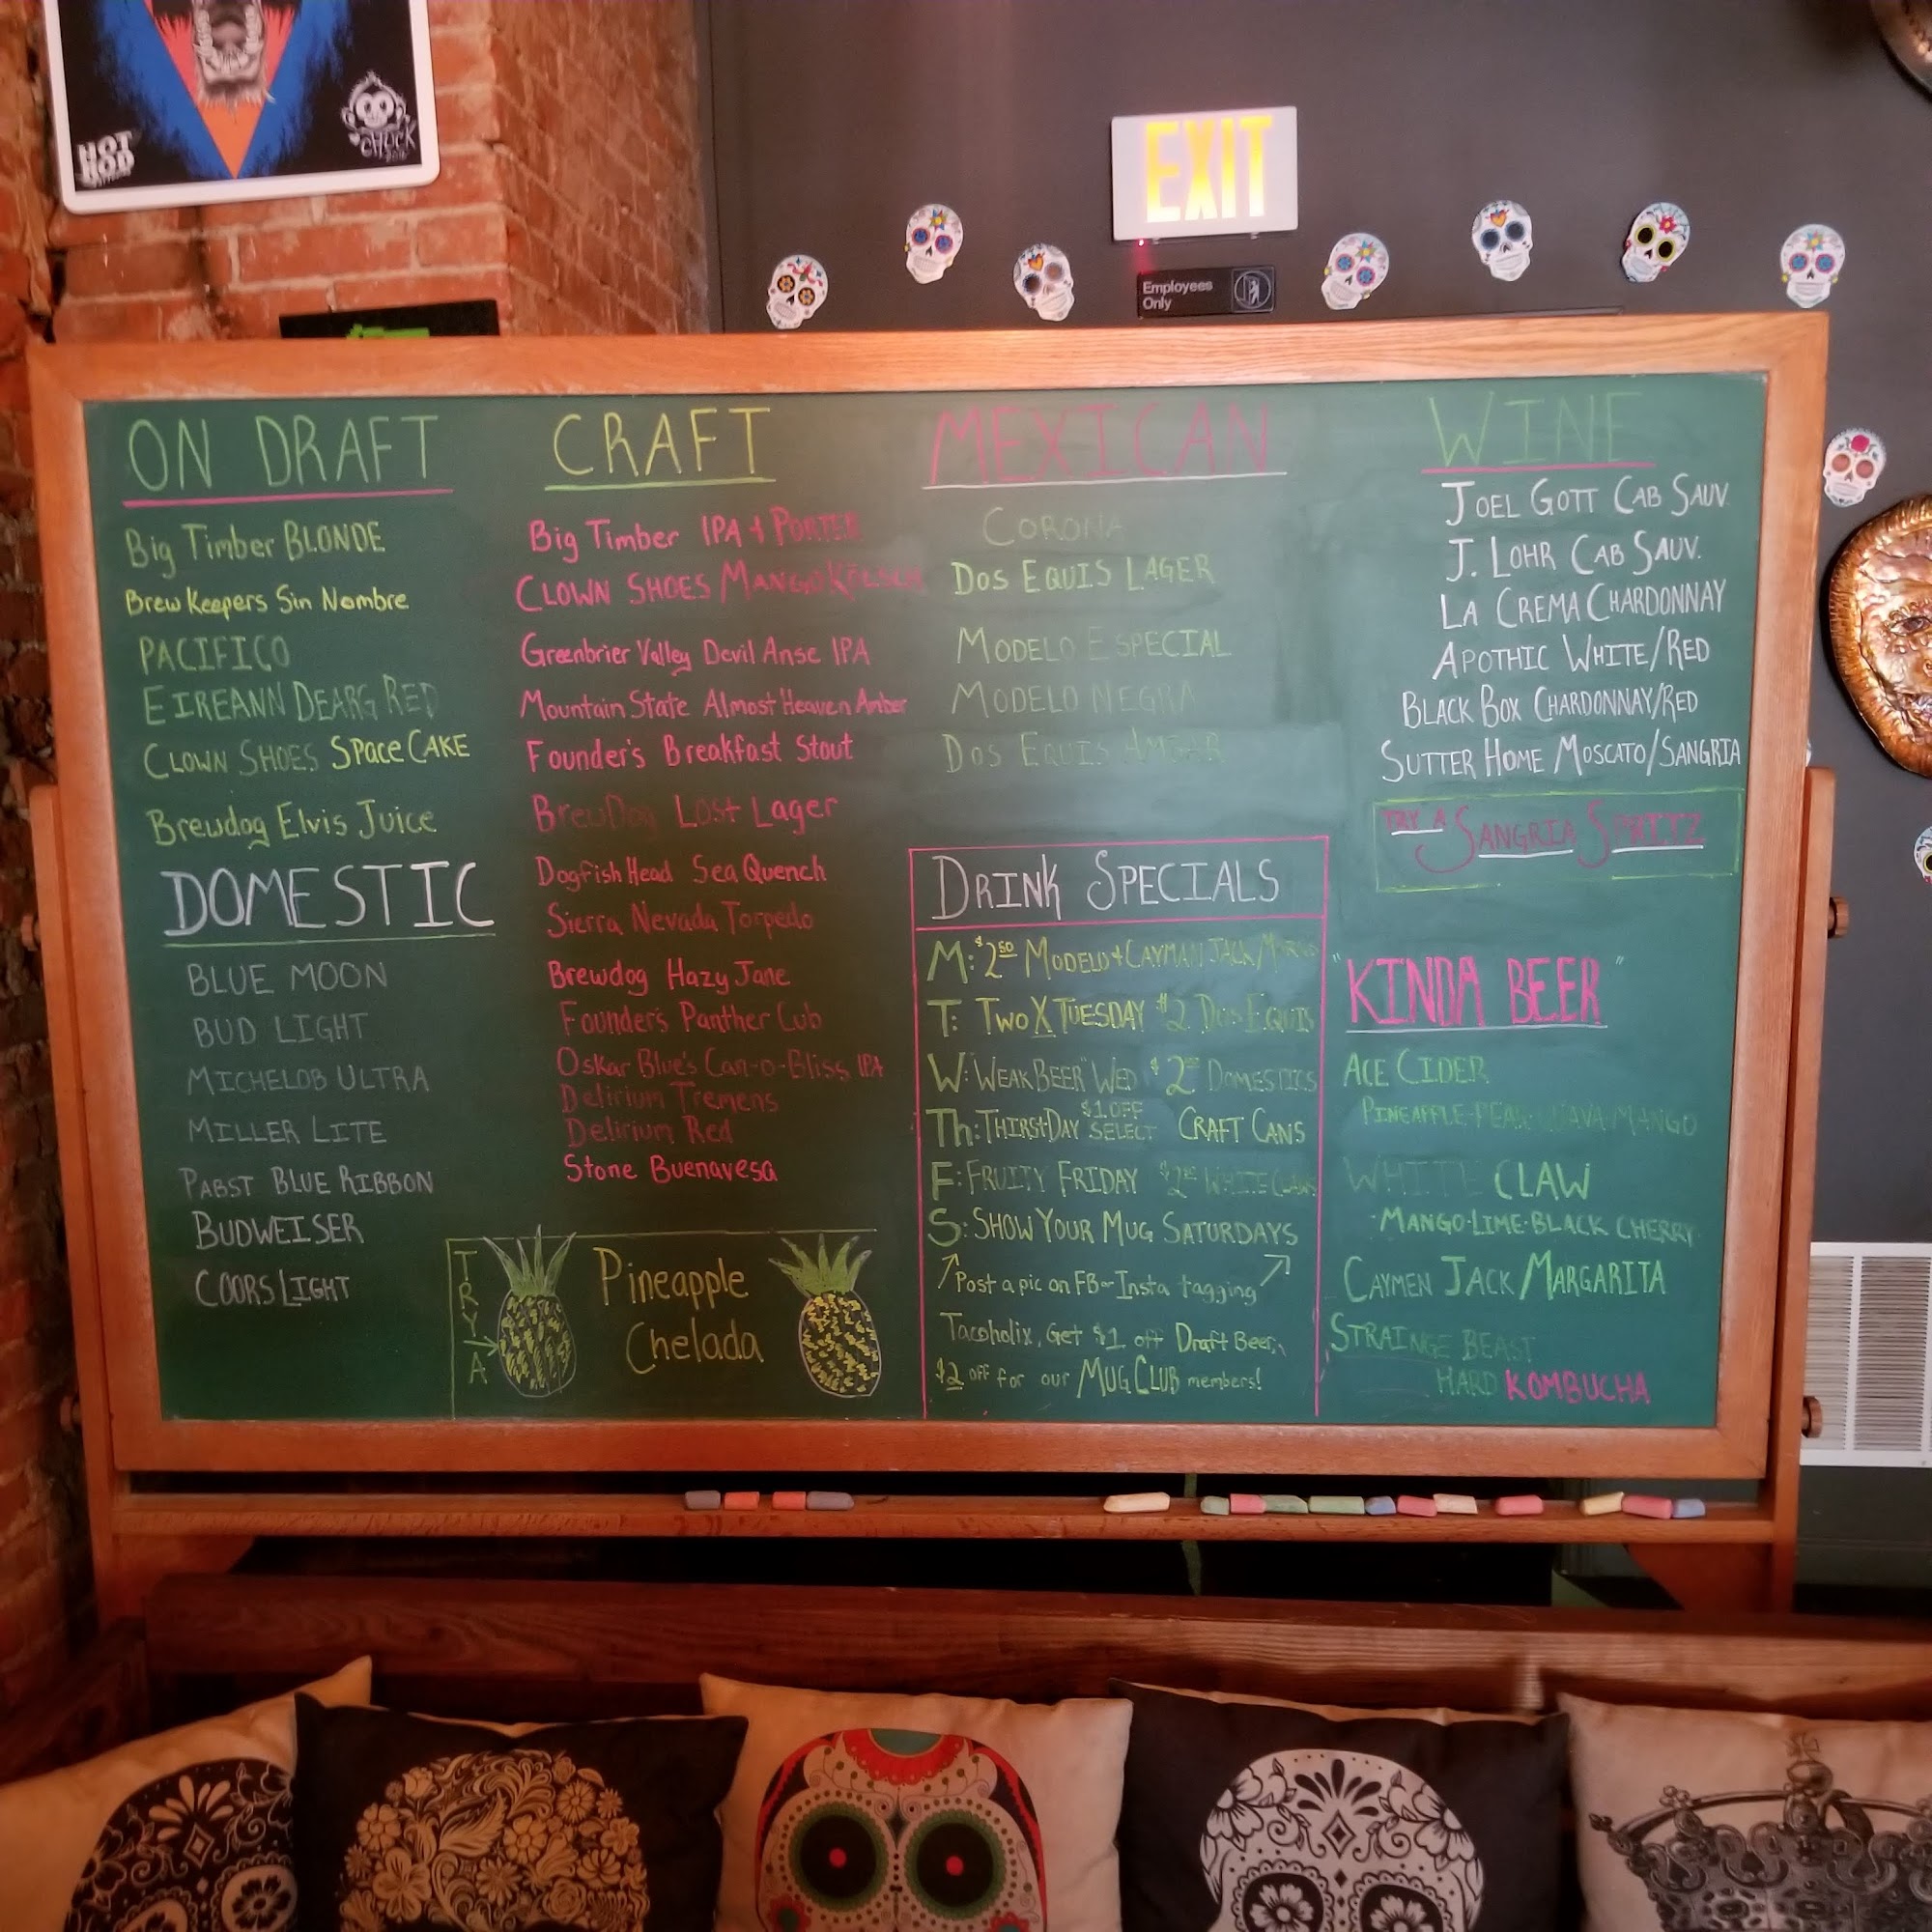 HOT ROD
CHUCK
EXIT
Employees
Only
ON DRAFT
Big Timber BLONDE
BrewKeepers Sin Nombre
PACIFICO
EIREANN DEARG RED
CLOWN SHOES SPACE CAKE
Brewdog Elvis Juice
DOMESTIC
BLUE MOON
BUD LIGHT
MICHELOB ULTRA
MILLER LITE
PABST BLUE RIBBON
BUDWEISER
COORS LIGHT
CRAFT
Big Timber IPA + PORTER
CLOWN SHOES MANGO KÖLSCH
Greenbrier Valley Devil Anse IPA
Mountain State Almost Heaven Amber
Founder's Breakfast Stout
BrewDog Lost Lager
Dogfish Head Sea Quench
Sierra Nevada Torpedo
Brewdog Hazy Jane
Founder's Panther Cub
Oskar Blue's Can-o-Bliss IPA
Delirium Tremens
Delirium Red
Stone Buenavesa
TRY A
Pineapple
Chelada
MEXICAN
CORONA
DOS EQUIS LAGER
MODELO ESPECIAL
MODELO NEGRA
DOS EQUIS AMBAR
DRINK SPECIALS
M: $2.50 MODELO + CAYMAN JACK/MARGS
T: TWO X TUESDAY $2 DOS EQUIS
W: "WEAK BEER" WED $2 DOMESTICS
Th: THIRSTDAY $1 OFF SELECT CRAFT CANS
F: FRUITY FRIDAY $2 WHITE CLAWS
S: SHOW YOUR MUG SATURDAYS
Post a pic on FB or Insta tagging
Tacoholix, Get $1 off Draft Beer,
$2 off for our MUG CLUB members!
WINE
JOEL GOTT CAB SAUV.
J. LOHR CAB SAUV.
LA CREMA CHARDONNAY
APOTHIC WHITE/RED
BLACK BOX CHARDONNAY/RED
SUTTER HOME MOSCATO/SANGRIA
TRY A SANGRIA SPRITZ
"KINDA BEER"
ACE CIDER
PINEAPPLE-PEAR-GUAVA-MANGO
WHITE CLAW
-MANGO-LIME-BLACK CHERRY
CAYMEN JACK/MARGARITA
STRAINGE BEAST
HARD KOMBUCHA